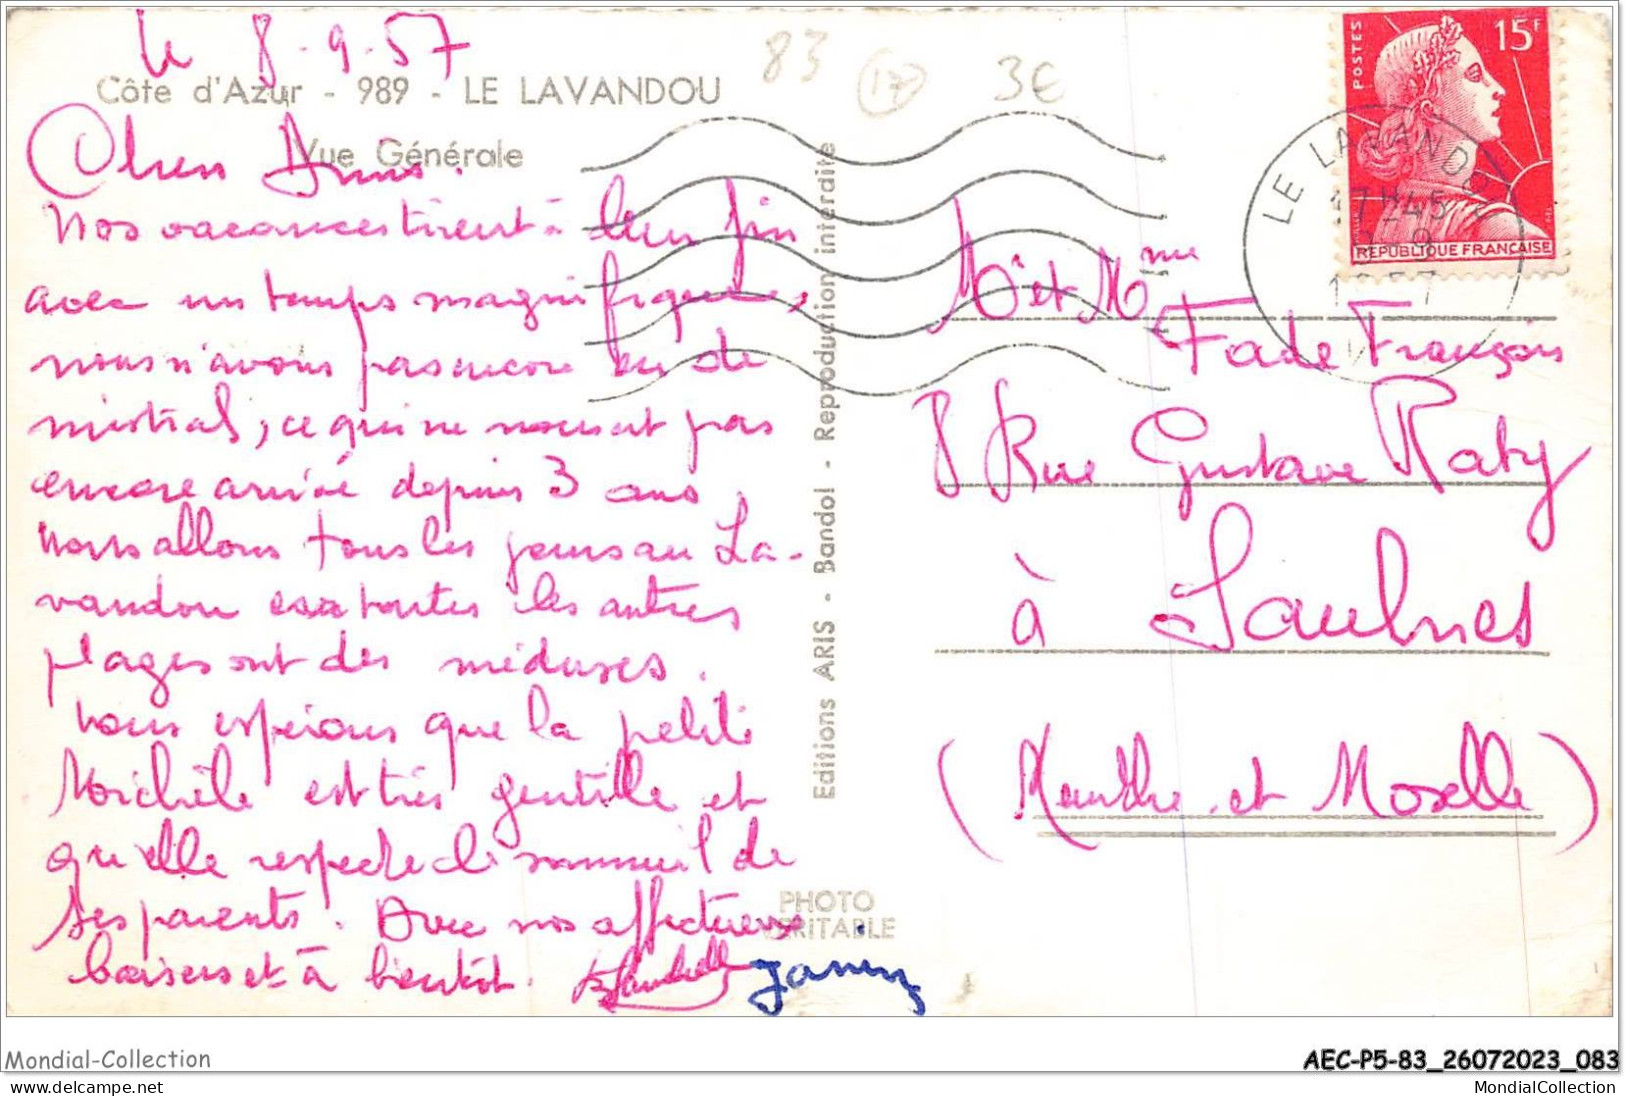 le 8-9-57
Côte d'Azur - 989 - LE LAVANDOU
Vue Générale
83 17 3€
Chers Amis.
Nos vacances tirent à leur fin
avec un temps magnifique,
nous n'avons pas encore eu de
mistral, ce qui ne nous est pas
encore arrivé depuis 3 ans,
nous allons tous les jours au La-
vandou car toutes les autres
plages ont des méduses.
Nous espérons que la petite
Michèle est très gentille et
qu'elle respecte le sommeil de
ses parents. Avec nos affectueux
baisers et à bientôt.
Janin
Editions ARIS - Bandol - Reproduction interdite
PHOTO
VERITABLE
POSTES
15F
REPUBLIQUE FRANÇAISE
LE LAVANDOU
17H45
8-9
1957
Mr et Mme
Fade François
8 Rue Gustave Raty
à Saulnes
(Meurthe et Moselle)
Mondial-Collection
delcampe.net
AEC-P5-83_26072023_083
MondialCollection